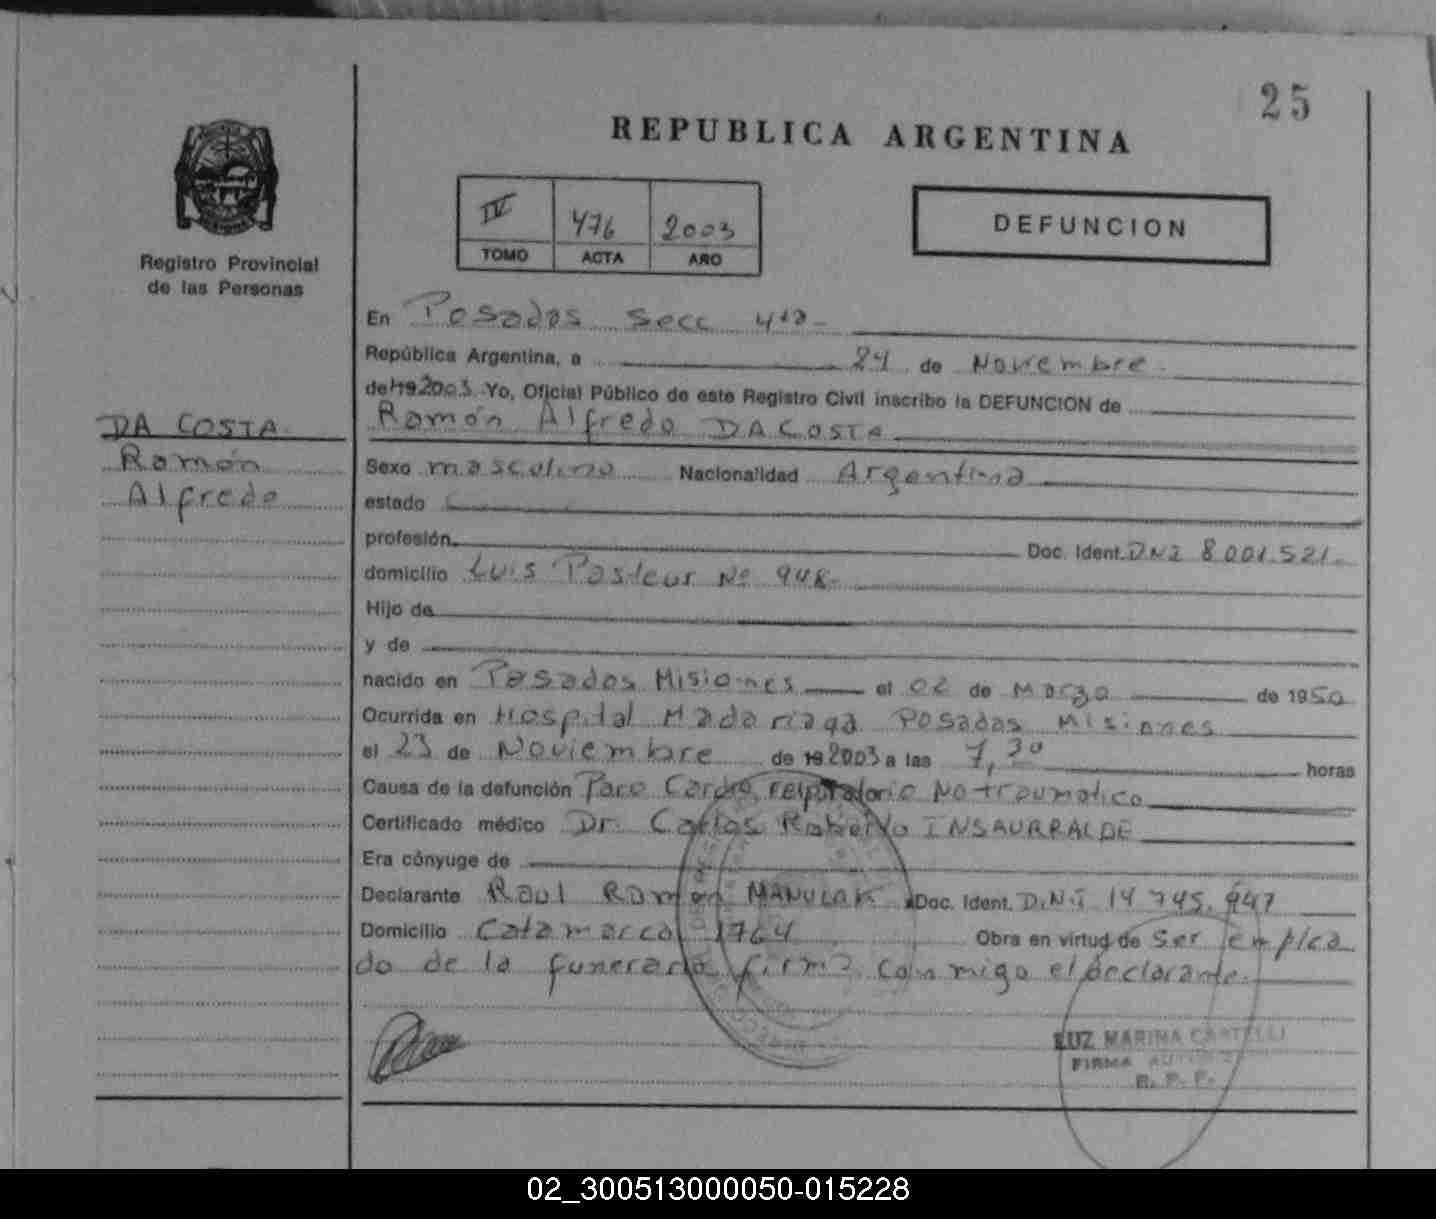 25
REPUBLICA ARGENTINA
IV 476 2003
TOMO ACTA AÑO
DEFUNCION
Registro Provincial
de las Personas
DA COSTA
Ramón
Alfredo
En Posadas Secc 4ta
República Argentina, a 24 de Noviembre
de 19 2003 Yo, Oficial Público de este Registro Civil inscribo la DEFUNCION de
Ramón Alfredo DA COSTA
Sexo masculino Nacionalidad Argentina
estado
profesión Doc. Ident. D.N.I 8.001.521.
domicilio Luis Pasteur Nº 948
Hijo de
y de
nacido en Posadas Misiones el 02 de Marzo de 1950
Ocurrida en Hospital Madariaga Posadas Misiones
el 23 de Noviembre de 19 2003 a las 7,30 horas
Causa de la defunción Paro Cardio respiratorio No traumatico
Certificado médico Dr. Carlos Roberto INSAURRALDE
Era cónyuge de
Declarante Raul Ramon MANULAK Doc. Ident. D.N.I 14.745.947
Domicilio Catamarca 1764 Obra en virtud de ser emplea
do de la funeraria firma conmigo el declarante.
LUZ MARINA CANTELLI
FIRMA
R. P. P.
02_300513000050-015228